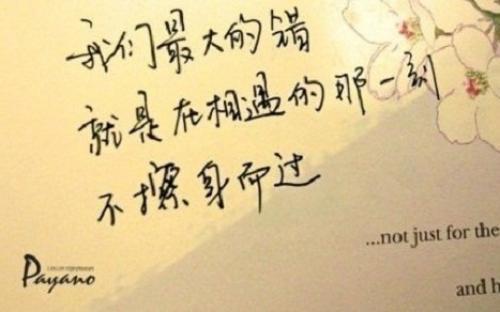 我们最大的错
就是在相遇的那一刻
不擦身而过
...not just for the
and h
Payano